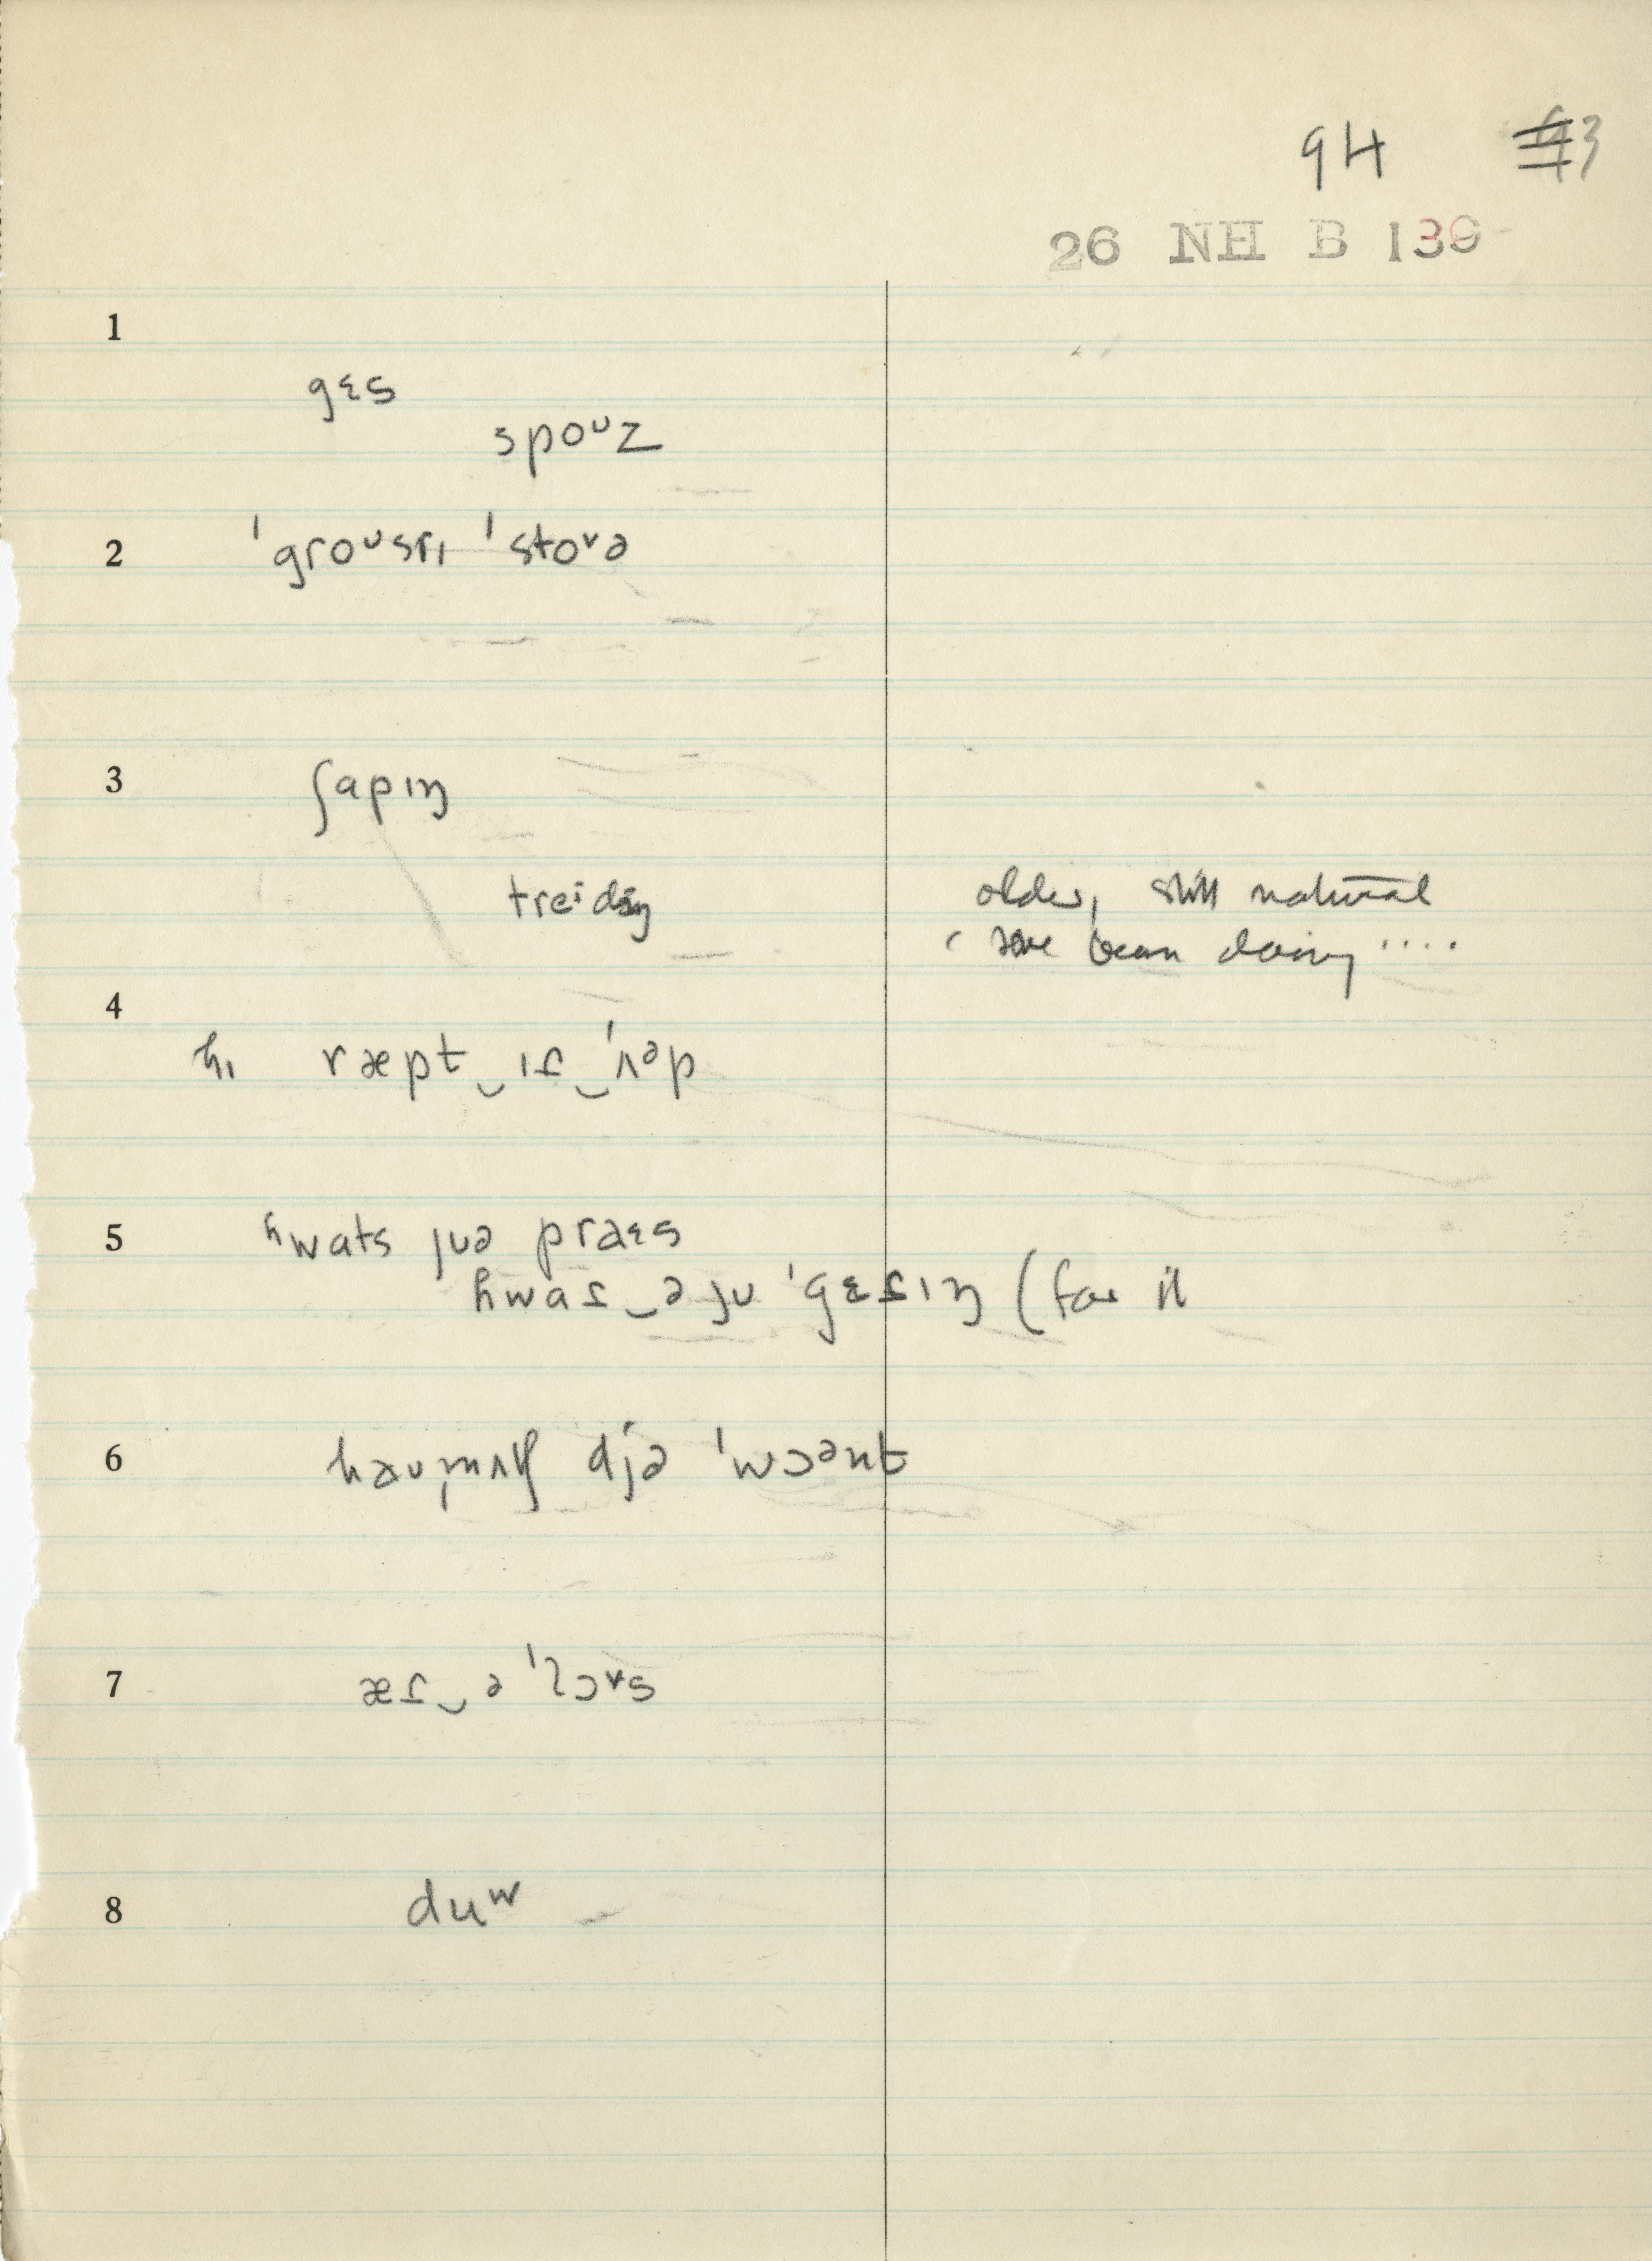 94
26 NH B 139
1
gɛs
spoᶷz
2
ˈgroᶷsrɪ ˈstoᶷə
3
ʃapɪŋ
treⁱdɪŋ
older, still natural
have been doing ....
4
ɦɪ ræpt‿ɪt̬‿ˈʌᵊp
5
ʱwats jʊə praɛs
ɦwat̬‿əjʊ ˈgɛt̬ɪŋ (for it
6
ɦaʊmʌtʃ djə ˈwɔənt
7
æt̬‿ə ˈlɔᵛs
8
duʷ